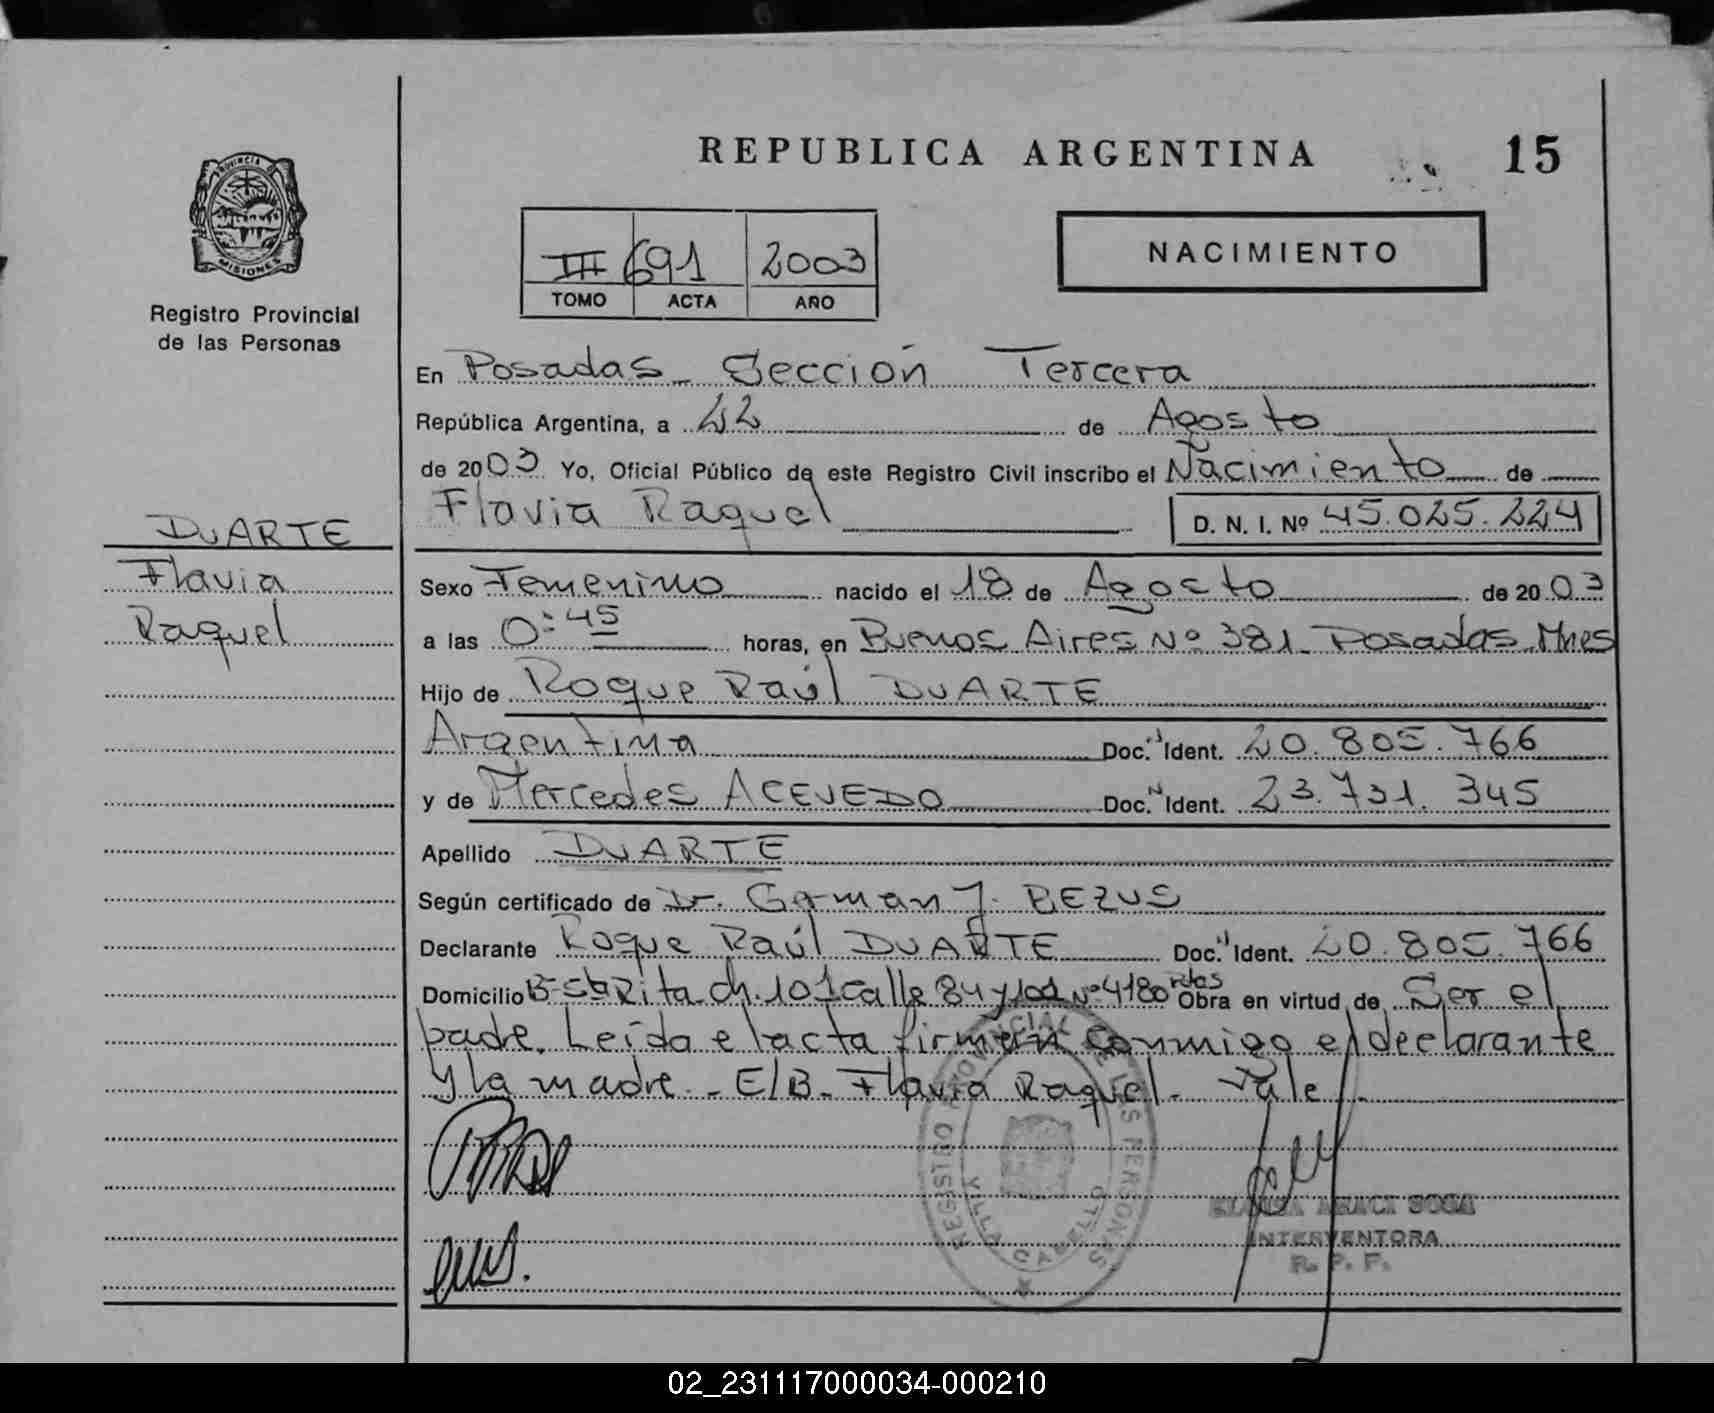 REPUBLICA ARGENTINA 15
PROVINCIA
MISIONES
Registro Provincial
de las Personas
III 691 2003
TOMO ACTA AÑO
NACIMIENTO
En Posadas - Sección Tercera
República Argentina, a 22 de Agosto
de 2003 Yo, Oficial Público de este Registro Civil inscribo el Nacimiento de
Flavia Raquel D. N. I. Nº 45.025.224
DUARTE
Flavia
Raquel
Sexo Femenino nacido el 18 de Agosto de 2003
a las 0:45 horas, en Buenos Aires Nº 381 - Posadas. Mnes
Hijo de Roque Raúl DUARTE
Argentina Doc. Ident. 20.805.766
y de Mercedes ACEVEDO Doc. Ident. 23.731.345
Apellido DUARTE
Según certificado de Dr. German J. BEZUS
Declarante Roque Raúl DUARTE Doc. Ident. 20.805.766
Domicilio Bº Sta Rita ch. 101 calle 84 y 101 Nº 4180 Pdas Obra en virtud de Ser el
padre. Leída el acta firman conmigo el declarante
y la madre. - E/B - Flavia Raquel - Vale.
REGISTRO PROVINCIAL DE LAS PERSONAS
VILLA CABELLO
SOSA
INTERVENTORA
R. P. P.
02_231117000034-000210